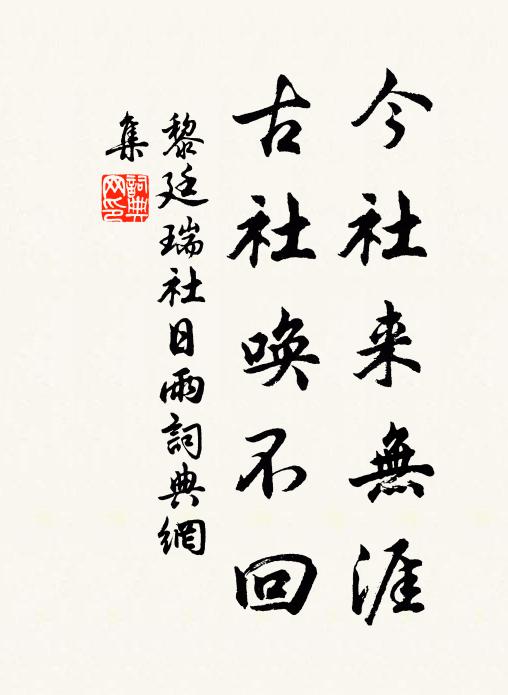 今社来無涯
古社喚不回
黎廷瑞社日雨詞典網
集
詞典网印